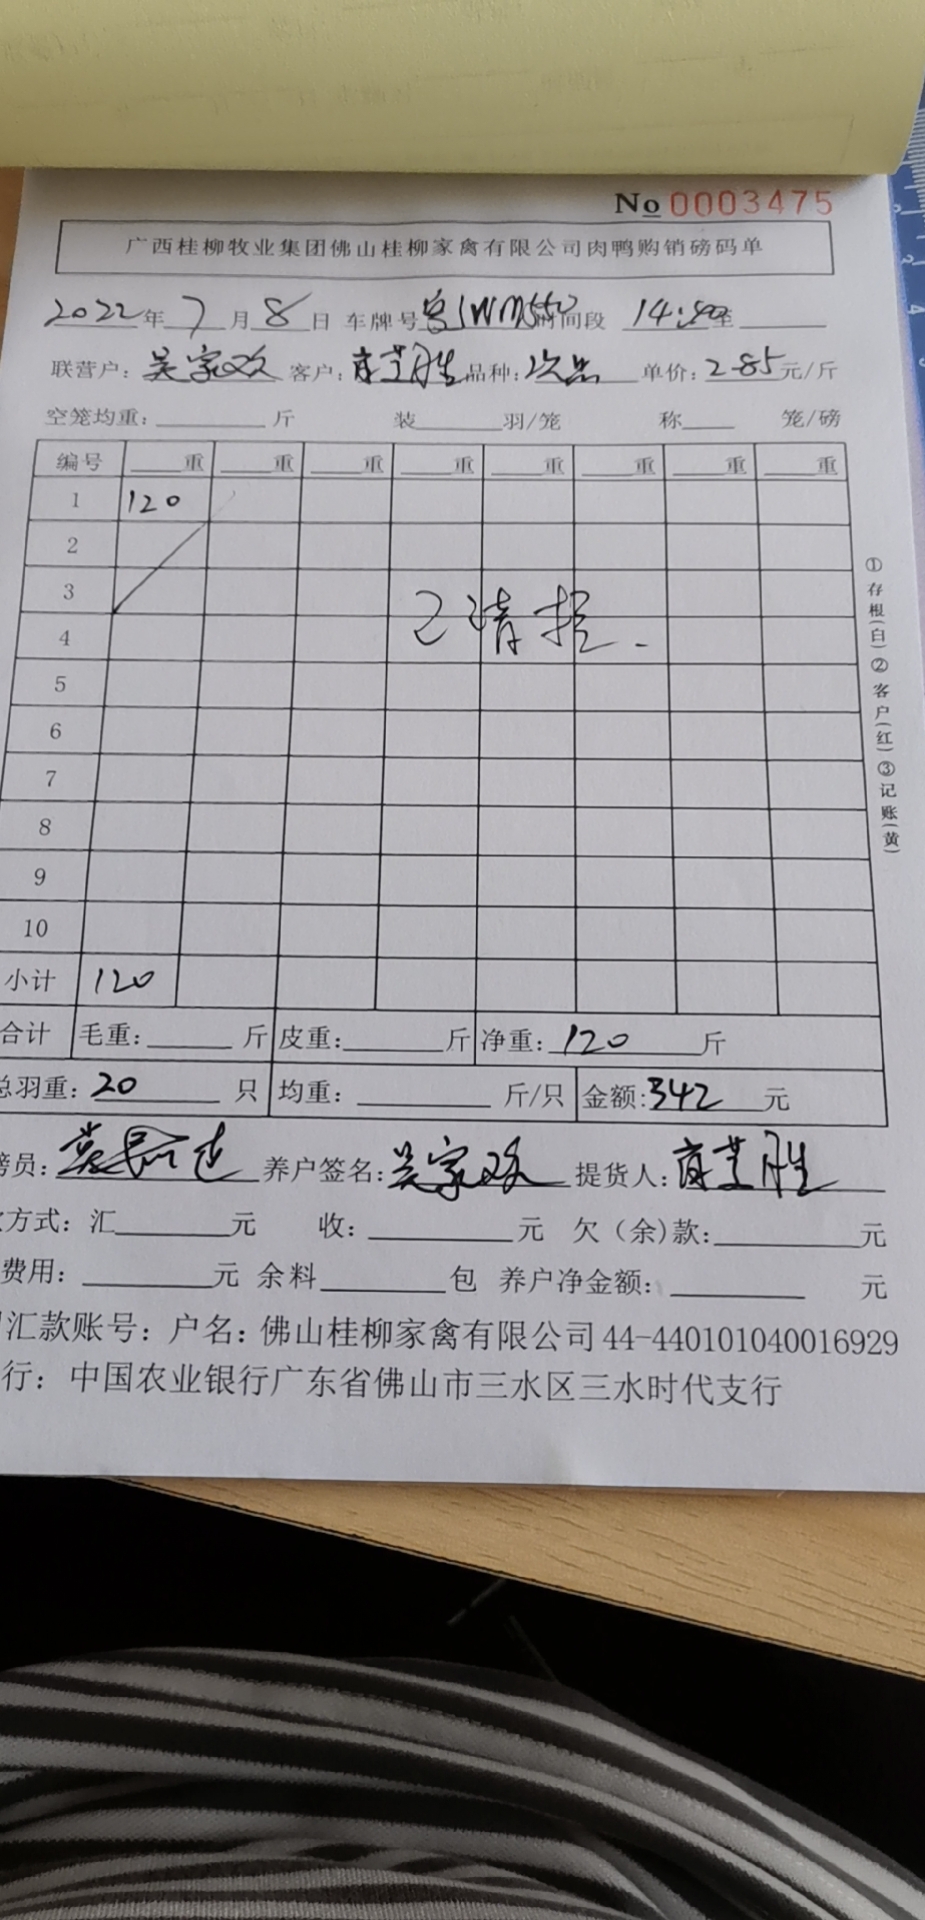 No 0003475
广西桂柳牧业集团佛山桂柳家禽有限公司肉鸭购销磅码单
2022年7月8日 车牌号 时间段 14: 至
联营户: 吴家欢 客户: 胜 品种: 次品 单价: 2.85元/斤
空笼均重: 斤 装 羽/笼 称 笼/磅
编号 重 重 重 重 重 重 重 重
1 120
2
3
已清
4
5
6
7
8
9
10
小计 120
合计 毛重: 斤 皮重: 斤 净重: 120 斤
总羽重: 20 只 均重: 斤/只 金额: 342 元
磅员: 养户签名: 吴家欢 提货人: 胜
方式: 汇 元 收: 元 欠(余)款: 元
费用: 元 余料 包 养户净金额: 元
汇款账号: 户名: 佛山桂柳家禽有限公司 44-440101040016929
行: 中国农业银行广东省佛山市三水区三水时代支行
①存根(白)②客户(红)③记账(黄)